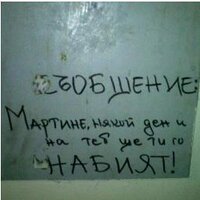 СЪОБШЕНИЕ:
МАРТИНЕ, някой ден и
на теб ще ти го
НАБИЯТ!